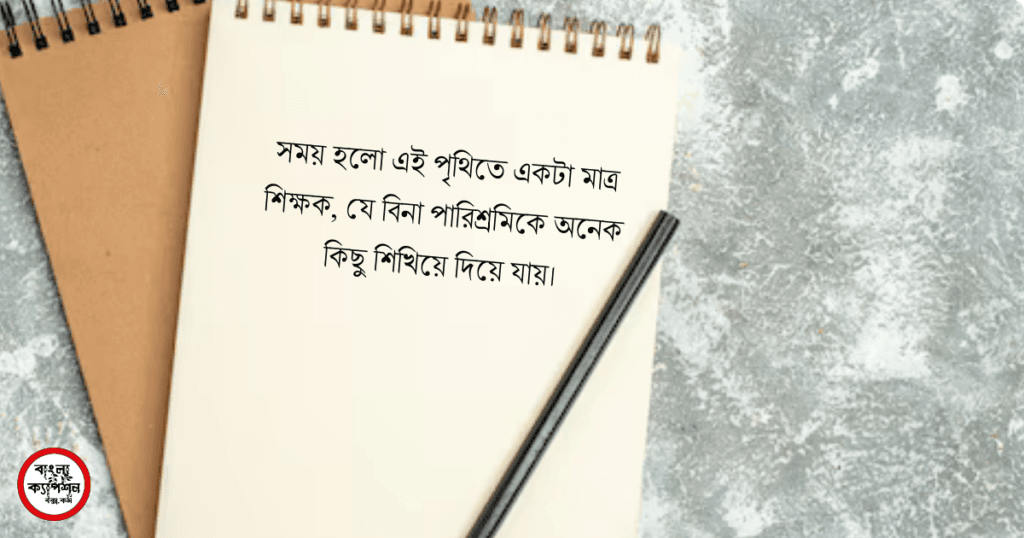 সময় হলো এই পৃথিতে একটা মাত্র
শিক্ষক, যে বিনা পারিশ্রমিকে অনেক
কিছু শিখিয়ে দিয়ে যায়।
বাংলা
ক্যাপশন